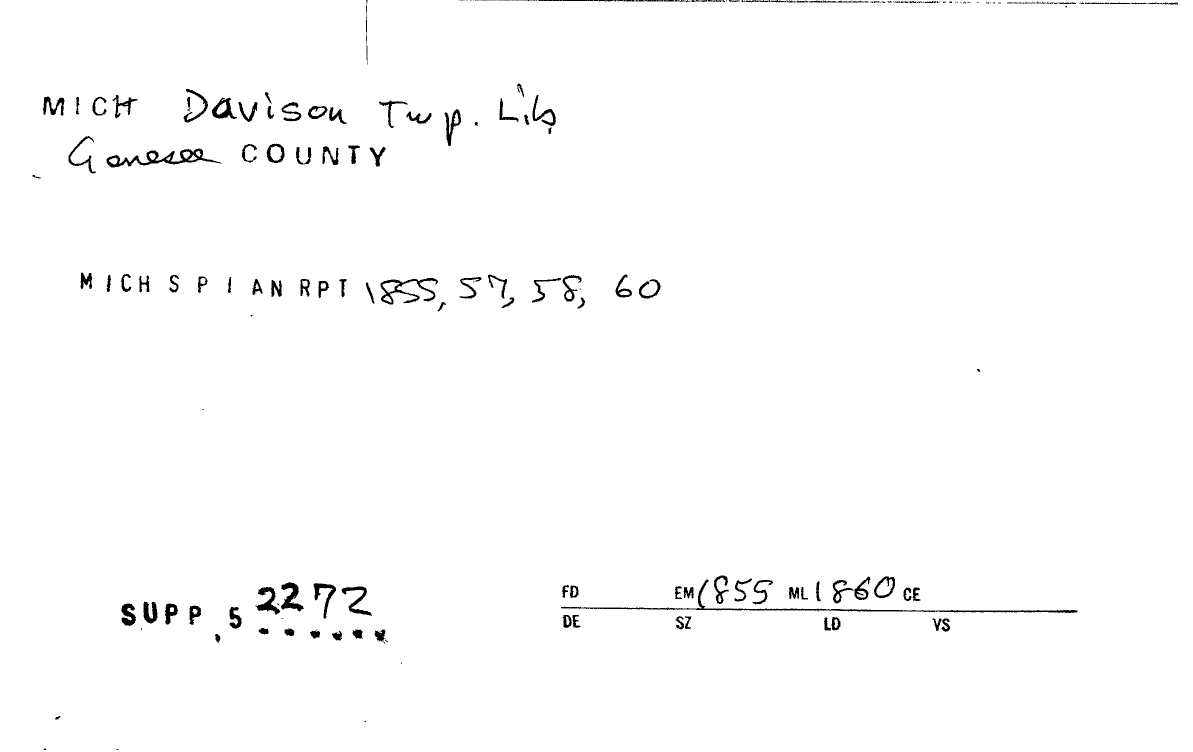 MICH Davison Twp. Lib
Genesee COUNTY
MICH S P I AN RPT 1855, 57, 58, 60
SUPP, 5 2272
FD EM 1855 ML 1860 CE
DE SZ LD VS